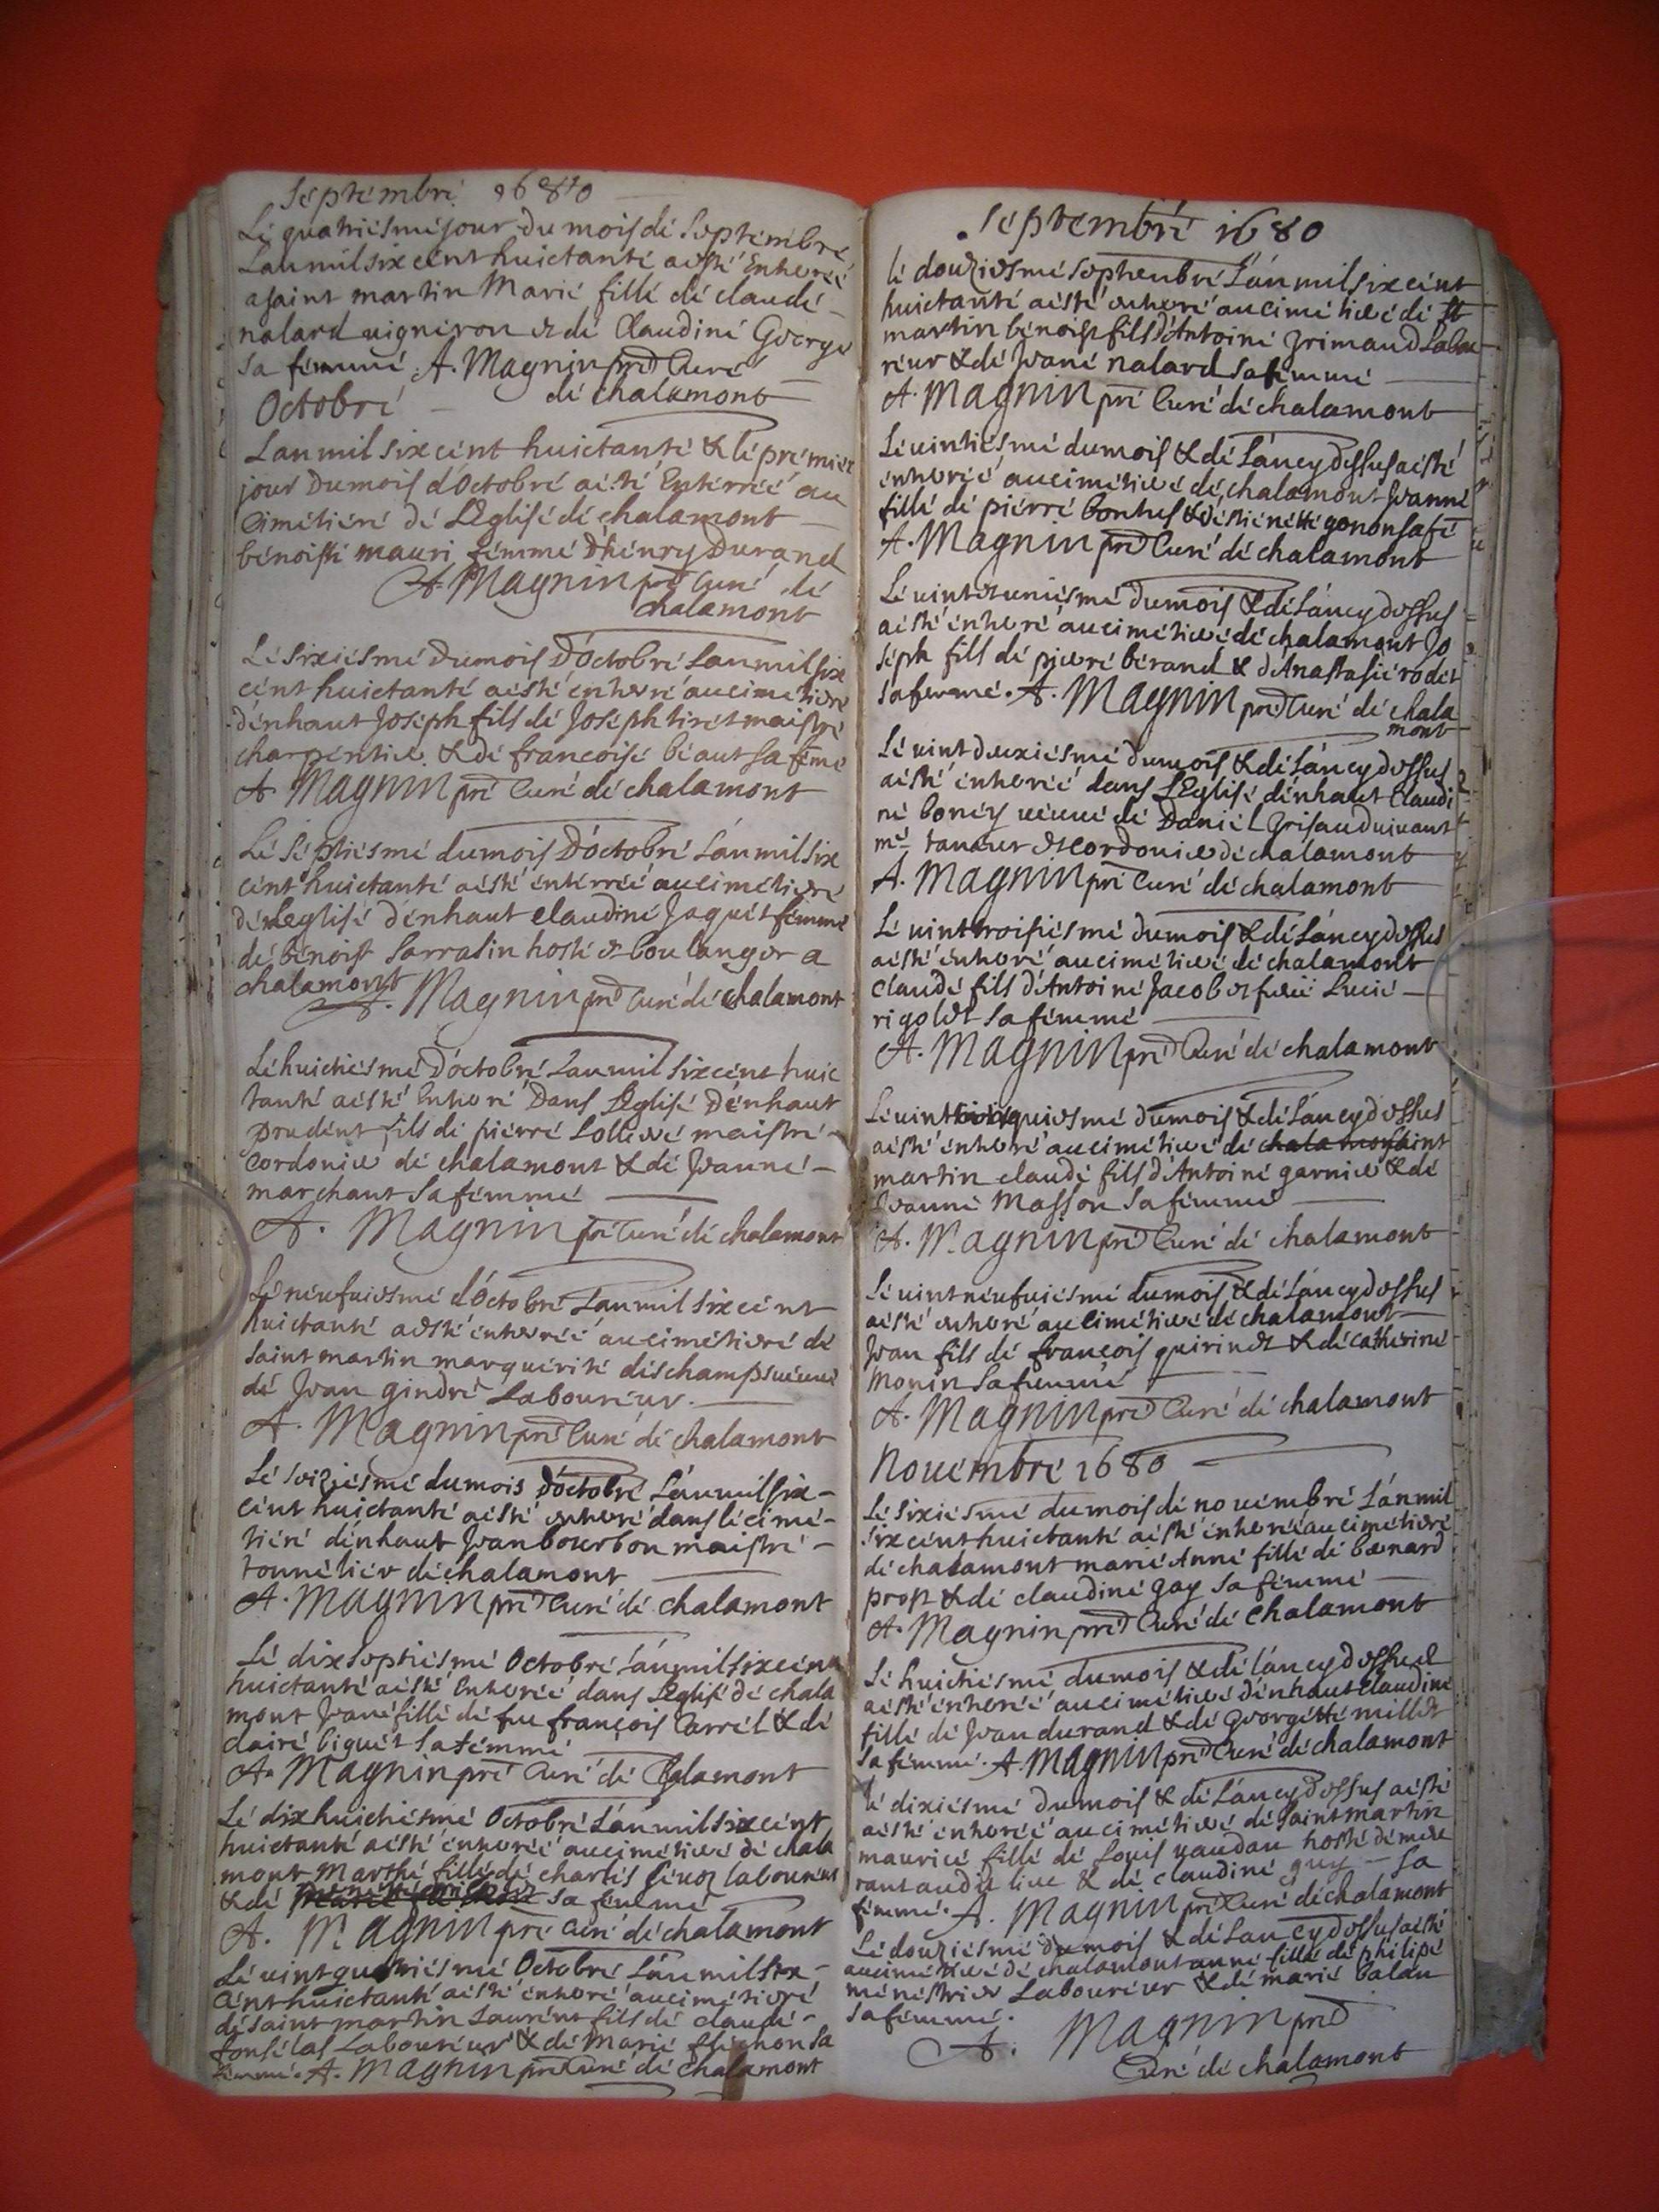 Septembre 1680
Le quatriesme jour du mois de Septembre
Lan mil six cent huictante a esté Enterrée
a saint martin Marie fille de claude
nalard uigneron et de Claudine George
sa femme. A. Magnin pre Curé
de chalamont
Octobre
Lan mil six cent huictante & le premier
jour du mois d'Octobre a esté Enterrée au
Cimetiere de L'Eglise de chalamont
benoiste mauri femme d'henry Durand
A. Magnin pre Curé de
chalamont
Le sixiesme du mois D'Octobre Lan mil six
cent huictante a esté enterré au cimetiere
d'enhaut Joseph fils de Joseph tiret maistre
charpentier & de francoise béaut sa feme
A Magnin pre Curé de chalamont
Le septiesme du mois D'octobre L'an mil six
cent huictante a esté enterrée au cimetiere
de Leglise d'enhaut claudine Jaquet femme
de benoist Sarrasin hoste et boulanger a
chalamont A. Magnin pre Curé de chalamont
Le huictiesme D'octobre Lan mil six cent huic
tante a esté Enterré Dans L'Eglise D'enhaut
prudent fils de pierre Lolliere maistre
Cordonier de chalamont & de Jeanne
marchant sa femme
A. Magnin pre Curé de chalamont
Le neufuiesme d'Octobre Lan mil six cent
huictante a esté enterrée au cimetiere de
saint martin marguerite deschamps ueuue
de Jean gindre Laboureur.
A. Magnin pre Curé de chalamont
Le seiziesme du mois d'octobre L'an mil six
cent huictante a esté enterré dans le cime
tiere d'enhaut Jean bourbon maistre
tonnelier de chalamont
A. Magnin pre Curé de chalamont
Le dixseptiesme Octobre L'an mil six cent
huictante a esté Enterrée dans L'eglise de chala
mont Jeane fille de fue françois Carrel & de
claire biguet sa femme
A. Magnin pre Curé de Chalamont
Le dixhuictiesme Octobre L'an mil six cent
huictante a esté enterrée au cimetiere de chala
mont Marthe fille de charles laboureur
& de sa femme
A. Magnin pre Curé de chalamont
Le uintquatriesme Octobre L'an mil six
cent huictante a esté enterré au cimetiere
de saint martin Laurent fils de claude
Laboureur & de Marie sa
femme. A. Magnin pre Curé de chalamont
Septembre 1680
le douziesme Septembre L'an mil six cent
huictante a esté enterré au cimetiere de st
martin benoist fils d'Antoine Grimaud Labou
reur & de Jeane nalard sa femme
A. Magnin pre Curé de chalamont
Le uintiesme du mois & de L'an cy dessus a esté
enterrée au cimetiere de chalamont Jeanne
fille de pierre bontus & d'estienette gonon sa fe
A. Magnin pre Curé de chalamont
Le uintetuniesme du mois & de L'an cy dessus
a esté enterré au cimetiere de chalamont Jo
seph fils de pierre berand & d'Anastasie rodet
sa femme. A. Magnin pre Curé de chala
mont
Le uintdeuxiesme du mois & de L'an cy dessus
a esté enterrée dans L'Eglise d'enhaut Claudi
ne boney ueuue de Daniel Grisaud uiuant
me taneur et cordonier de chalamont
A. Magnin pre Curé de chalamont
Le uinttroisiesme du mois & de L'an cy dessus
a esté enterré au cimetiere de chalamont
Claude fils d'Antoine Jacob et Lucie
rigolet sa femme
A. Magnin pre Curé de chalamont
Le uintcinquiesme du mois & de L'an cy dessus
a esté enterré au cimetiere de chalamont saint
martin claude fils d'Antoine garnier & de
Jeanne Masson sa femme
A. Magnin pre Curé de chalamont
Le uintneufuiesme du mois & de L'an cy dessus
a esté enterré au Cimetiere de chalamont
Jean fils de françois quirindt & de catherine
Monin sa femme
A. Magnin pre Curé de chalamont
Nouembre 1680
Le sixiesme du mois de nouembre L'an mil
six cent huictante a esté enterrée au cimetiere
de chalamont marie Anne fille de benard
prost & de claudine Gay sa femme
A. Magnin pre Curé de Chalamont
Le huictiesme du mois & de l'an cy dessus
a esté enterrée au cimetiere d'enhaut claudine
fille de Jean durand & de Georgette millet
sa femme. A. Magnin pre Curé de chalamont
Le dixiesme du mois & de L'an cy dessus a esté
a esté enterrée au cimetiere de saint martin
maurice fille de Louis uaudan hoste demeu
rant audit lieu & de claudine guy sa
femme. A. Magnin pre Curé de chalamont
Le douziesme du mois & de L'an cy dessus a esté
au cimetiere de chalamont anne fille de philipe
menestrier Laboureur & de marie balan
sa femme.
A. Magnin pre
Curé de chalamont